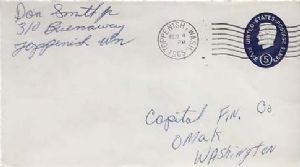 Don Smith Jr
310 Buenaway
Toppenish Wn
TOPPENISH, WASH.
PM
1965
UNITED STATES
5
Capital Fin. Co
OMAK
WASHINGTON